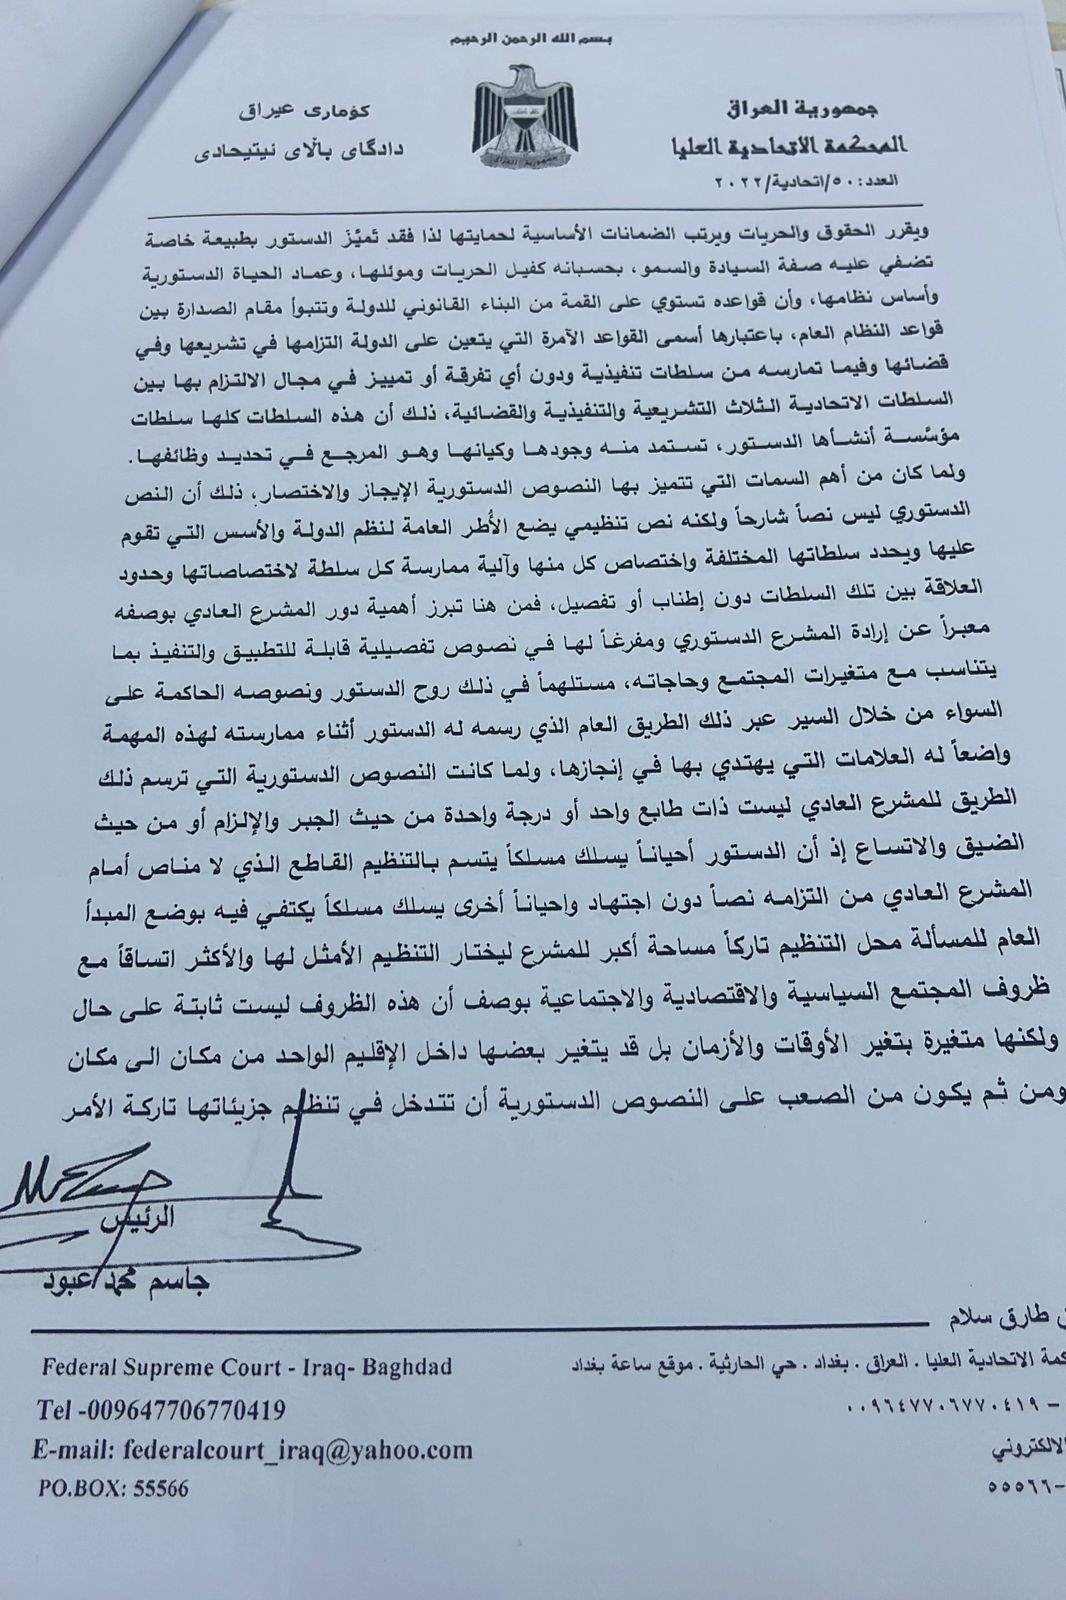 بسم الله الرحمن الرحيم
جمهورية العراق
المحكمة الاتحادية العليا
العدد: ٥٠/اتحادية/٢٠٢٢
كۆماری عیراق
دادگای باڵای ئیتیحادی
ويقرر الحقوق والحريات ويرتب الضمانات الأساسية لحمايتها لذا فقد تَميَّزَ الدستور بطبيعة خاصة
تضفي عليه صفة السيادة والسمو، بحسبانه كفيل الحريات وموئلها، وعماد الحياة الدستورية
وأساس نظامها، وأن قواعده تستوي على القمة من البناء القانوني للدولة وتتبوأ مقام الصدارة بين
قواعد النظام العام، باعتبارها أسمى القواعد الآمرة التي يتعين على الدولة التزامها في تشريعها وفي
قضائها وفيما تمارسه من سلطات تنفيذية ودون أي تفرقة أو تمييز في مجال الالتزام بها بين
السلطات الاتحادية الثلاث التشريعية والتنفيذية والقضائية، ذلك أن هذه السلطات كلها سلطات
مؤسَّسة أنشأها الدستور، تستمد منه وجودها وكيانها وهو المرجع في تحديد وظائفها.
ولما كان من أهم السمات التي تتميز بها النصوص الدستورية الإيجاز والاختصار، ذلك أن النص
الدستوري ليس نصاً شارحاً ولكنه نص تنظيمي يضع الأُطر العامة لنظم الدولة والأسس التي تقوم
عليها ويحدد سلطاتها المختلفة واختصاص كل منها وآلية ممارسة كل سلطة لاختصاصاتها وحدود
العلاقة بين تلك السلطات دون إطناب أو تفصيل، فمن هنا تبرز أهمية دور المشرع العادي بوصفه
معبراً عن إرادة المشرع الدستوري ومفرغاً لها في نصوص تفصيلية قابلة للتطبيق والتنفيذ بما
يتناسب مع متغيرات المجتمع وحاجاته، مستلهماً في ذلك روح الدستور ونصوصه الحاكمة على
السواء من خلال السير عبر ذلك الطريق العام الذي رسمه له الدستور أثناء ممارسته لهذه المهمة
واضعاً له العلامات التي يهتدي بها في إنجازها، ولما كانت النصوص الدستورية التي ترسم ذلك
الطريق للمشرع العادي ليست ذات طابع واحد أو درجة واحدة من حيث الجبر والإلزام أو من حيث
الضيق والاتساع إذ أن الدستور أحياناً يسلك مسلكاً يتسم بالتنظيم القاطع الذي لا مناص أمام
المشرع العادي من التزامه نصاً دون اجتهاد واحياناً أخرى يسلك مسلكاً يكتفي فيه بوضع المبدأ
العام للمسألة محل التنظيم تاركاً مساحة أكبر للمشرع ليختار التنظيم الأمثل لها والأكثر اتساقاً مع
ظروف المجتمع السياسية والاقتصادية والاجتماعية بوصف أن هذه الظروف ليست ثابتة على حال
ولكنها متغيرة بتغير الأوقات والأزمان بل قد يتغير بعضها داخل الإقليم الواحد من مكان الى مكان
ومن ثم يكون من الصعب على النصوص الدستورية أن تتدخل في تنظيم جزيئاتها تاركة الأمر
الرئيس
جاسم محمد عبود
طارق سلام
الاتحادية العليا . العراق . بغداد . حي الحارثية . موقع ساعة بغداد
– ٠٠٩٦٤٧٧٠٦٧٧٠٤١٩
الالكتروني
-٥٥٥٦٦
Federal Supreme Court - Iraq- Baghdad
Tel -009647706770419
E-mail: federalcourt_iraq@yahoo.com
PO.BOX: 55566